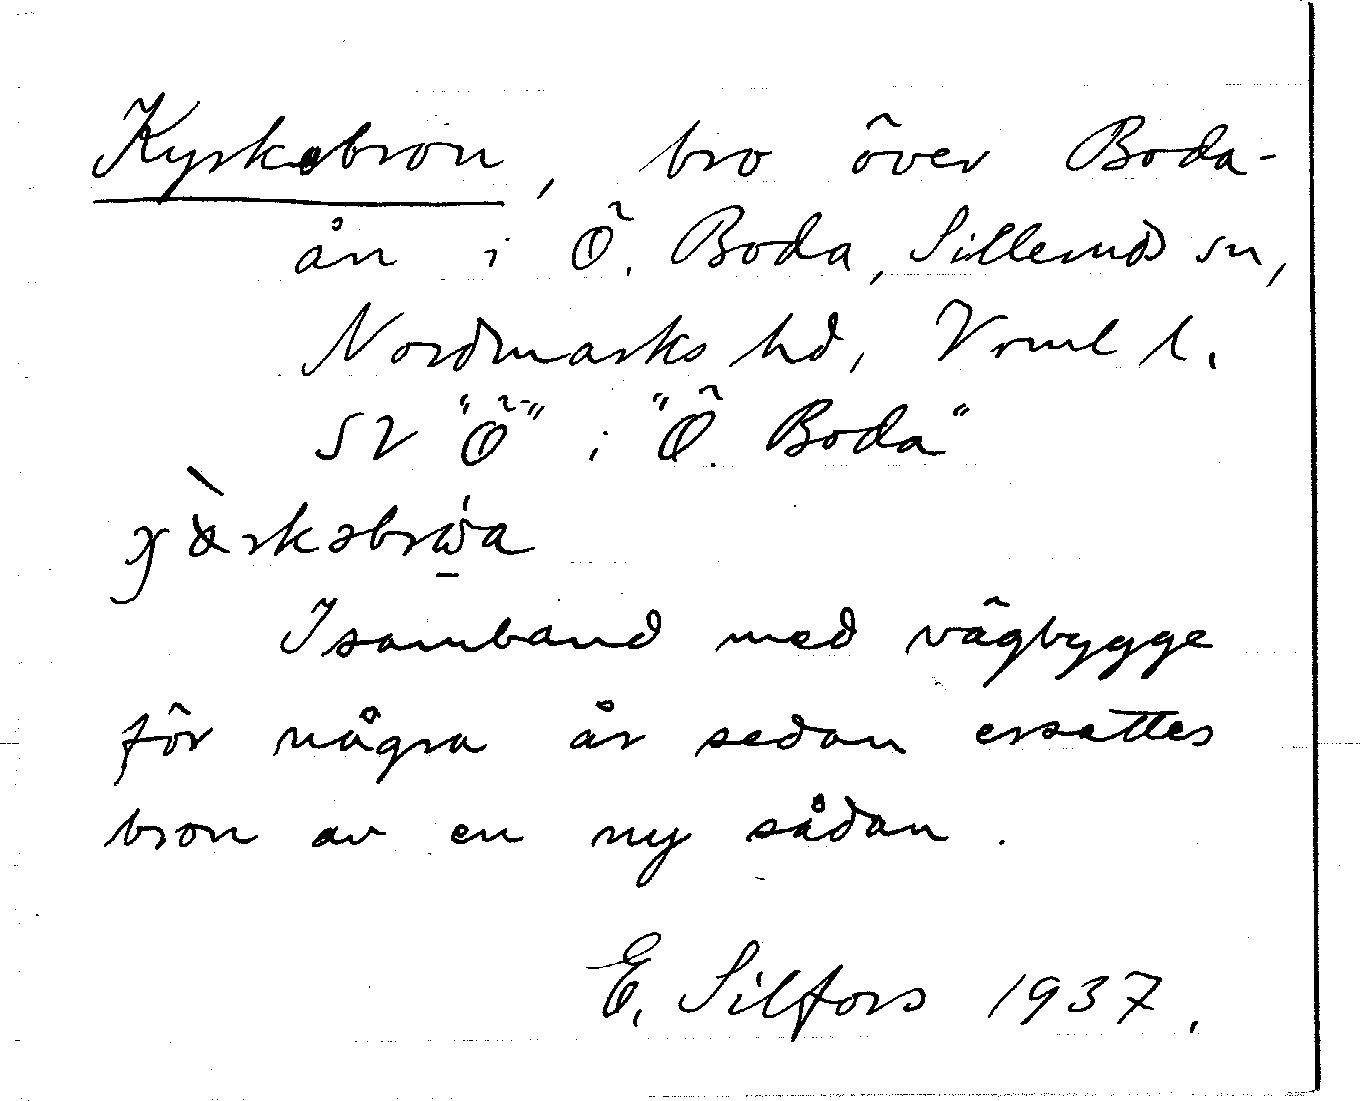 Kyrkebron, bro över Boda-
ån i Ö. Boda, Sillerud sn,
Nordmarks hd, Vrml l.
SV "Ö" i "Ö. Boda"

I samband med vägbygge
för några år sedan ersattes
bron av en ny sådan.
E. Silfors 1937.